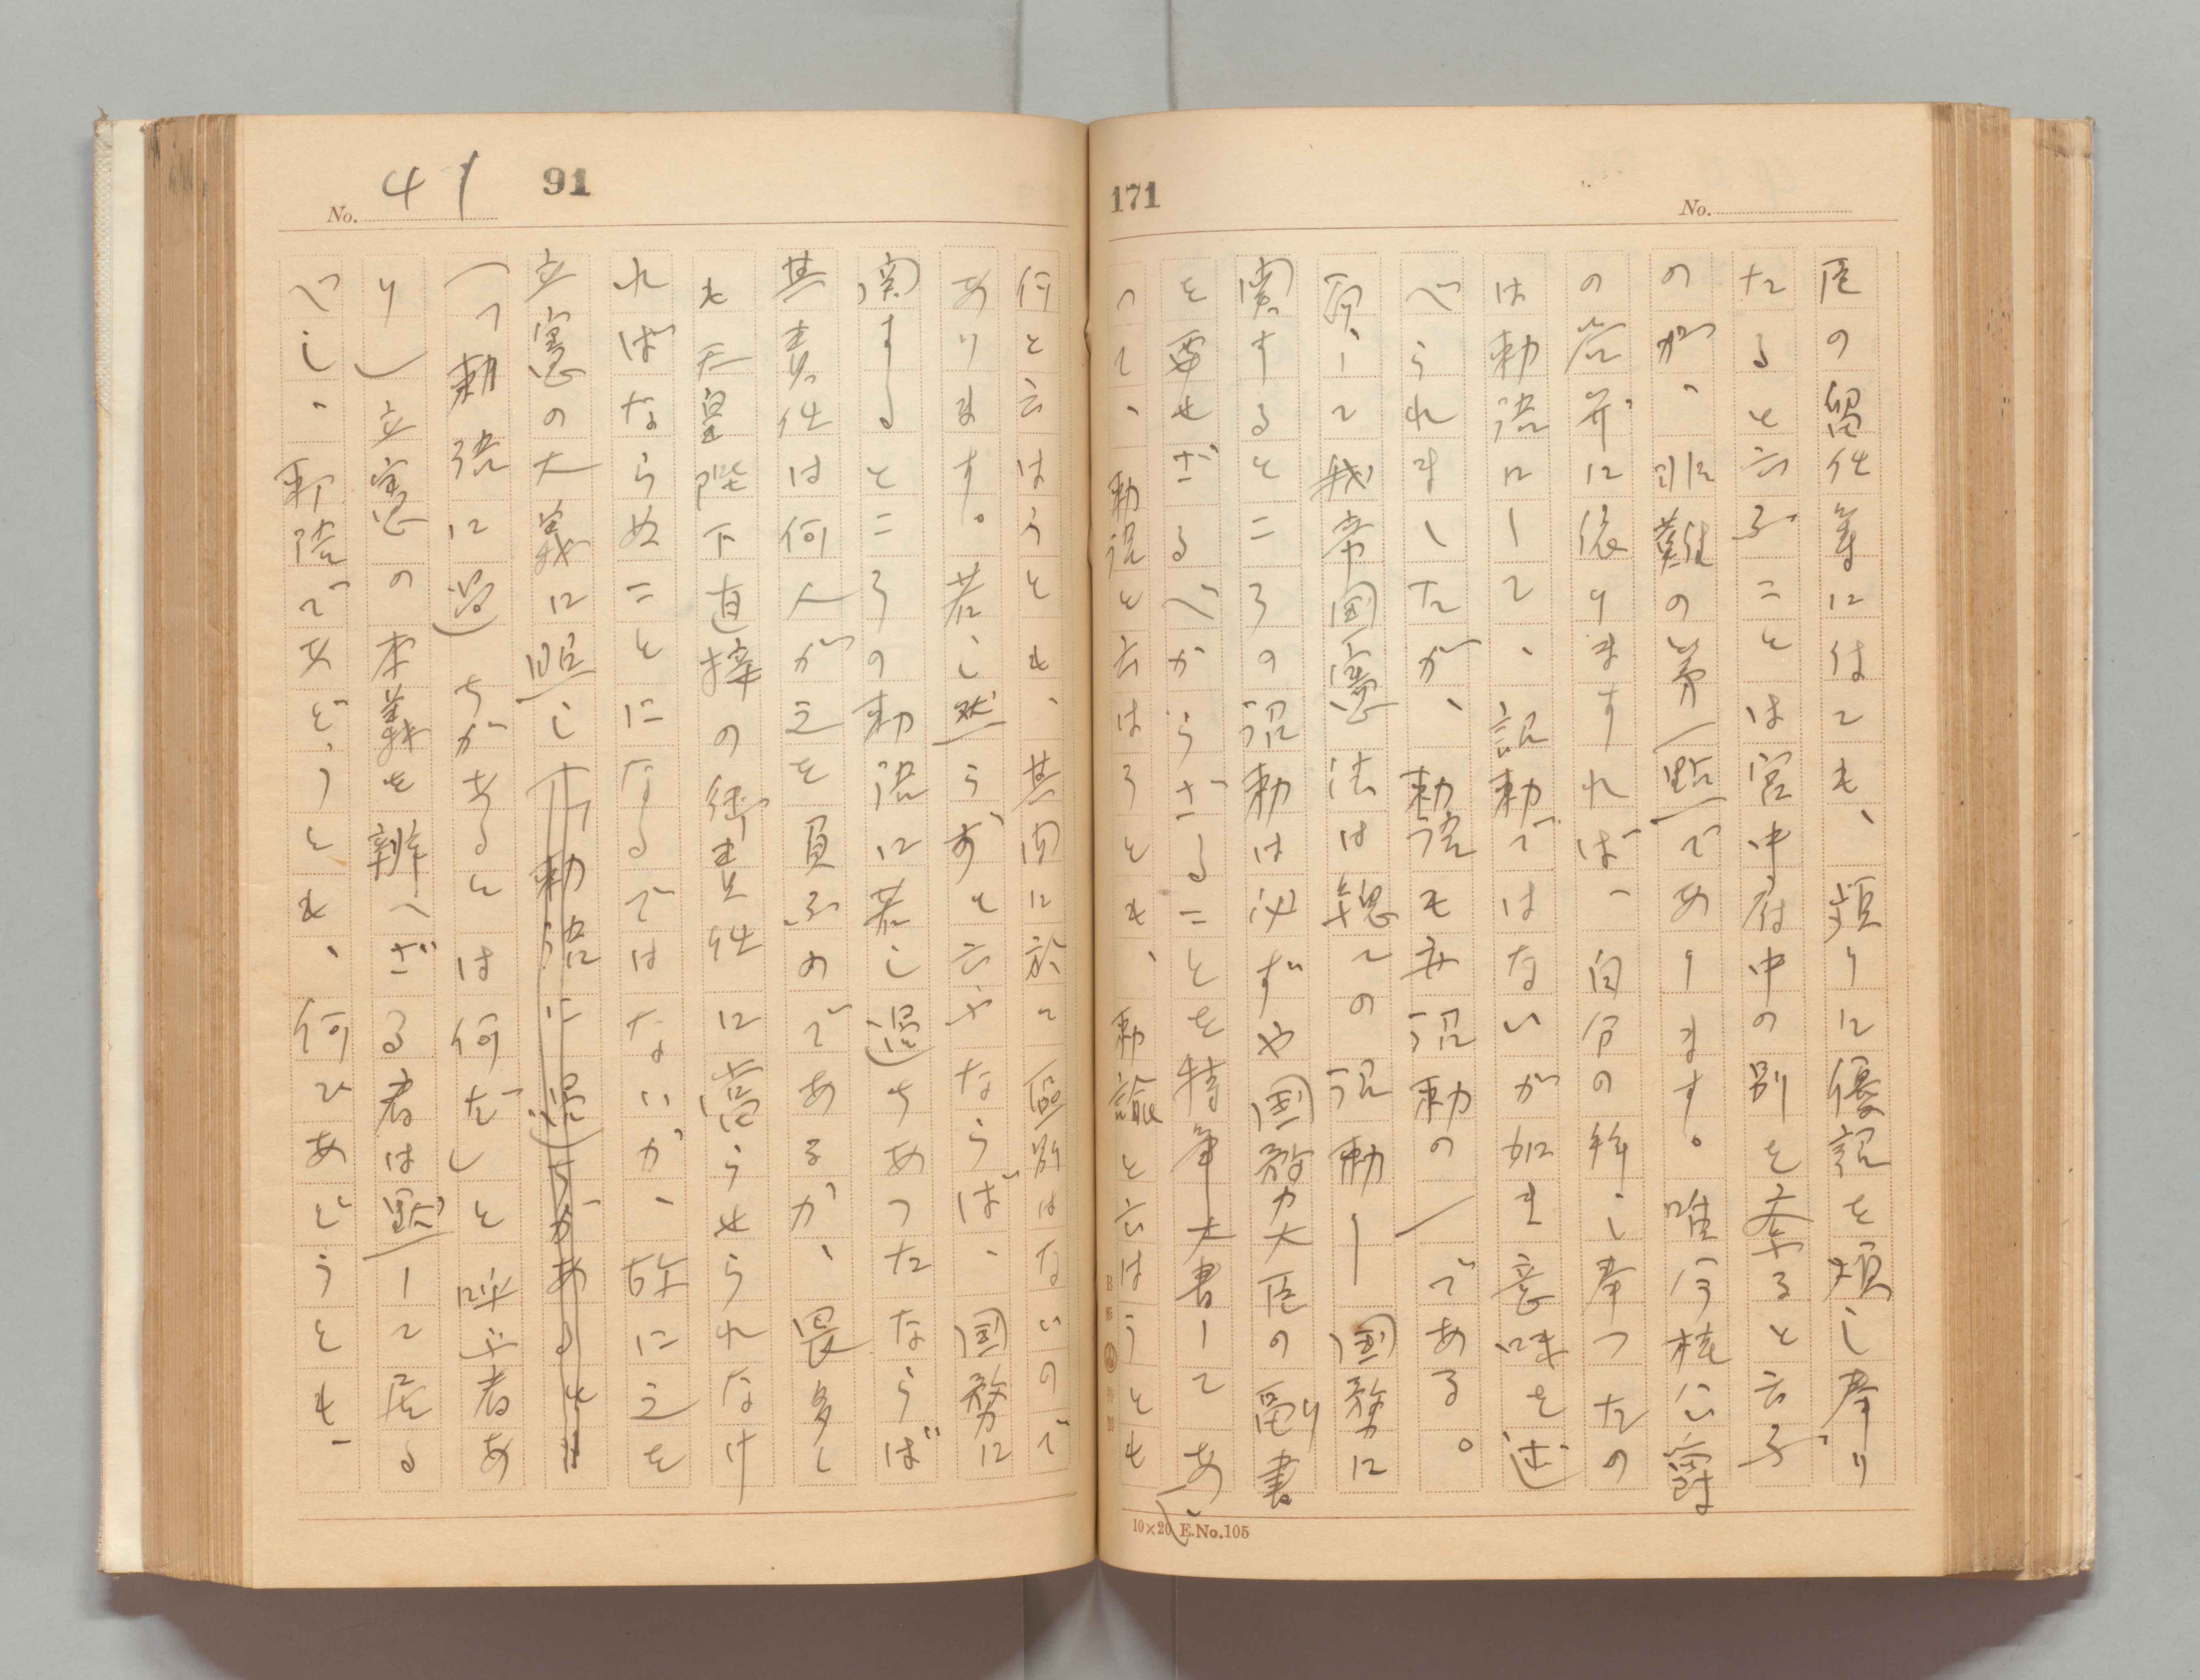 171
No.
臣の留任等に付ても、頻りに優詔を煩し奉り
たると云ふことは宮中府中の別を紊ると云ふ
のが、非難の第一点であります。唯今桂公爵
の答弁に依りますれば、自分の拝し奉つたの
は勅語にして、詔勅ではないが如き意味を述
べられましたが、勅語も亦詔勅の一である。
而して我帝国憲法は総ての詔勅―国務に
関するところの詔勅は必ずや国務大臣の副書
を要せざるべからざることを特筆大書してあ
つて、勅語と云はうとも、勅諭と云はうとも
No. 41
91
何と云はうとも、其間に於て区別はないので
あります。若し然らずと云ふならば、国務に
関するところの勅語に若し過ちあつたならば
其責任は何人が之を負ふのであるか、畏多く
も天皇陛下直接の御責任に当らせられなけ
ればならぬことになるではないか、故に之を
立憲の大義に照し(「勅語に過ちがあるとは
(「勅語に過ちがあるとは何だ」と呼ぶ者あ
り)立憲の本義を辨へざる者は黙して居る
べし、勅語であらうとも、何であらうとも、
B形 特製
10×20 E.No.105